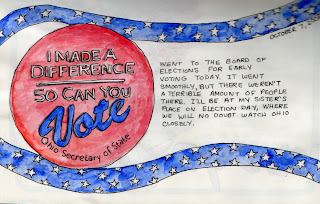 OCTOBER 7, 
I MADE A
DIFFERENCE
SO CAN YOU
Vote
Ohio Secretary of State
WENT TO THE BOARD OF
ELECTIONS FOR EARLY
VOTING TODAY. IT WENT
SMOOTHLY, BUT THERE WEREN'T
A TERRIBLE AMOUNT OF PEOPLE
THERE. I'LL BE AT MY SISTER'S
PLACE ON ELECTION DAY, WHERE
WE WILL NO DOUBT WATCH OHIO
CLOSELY.